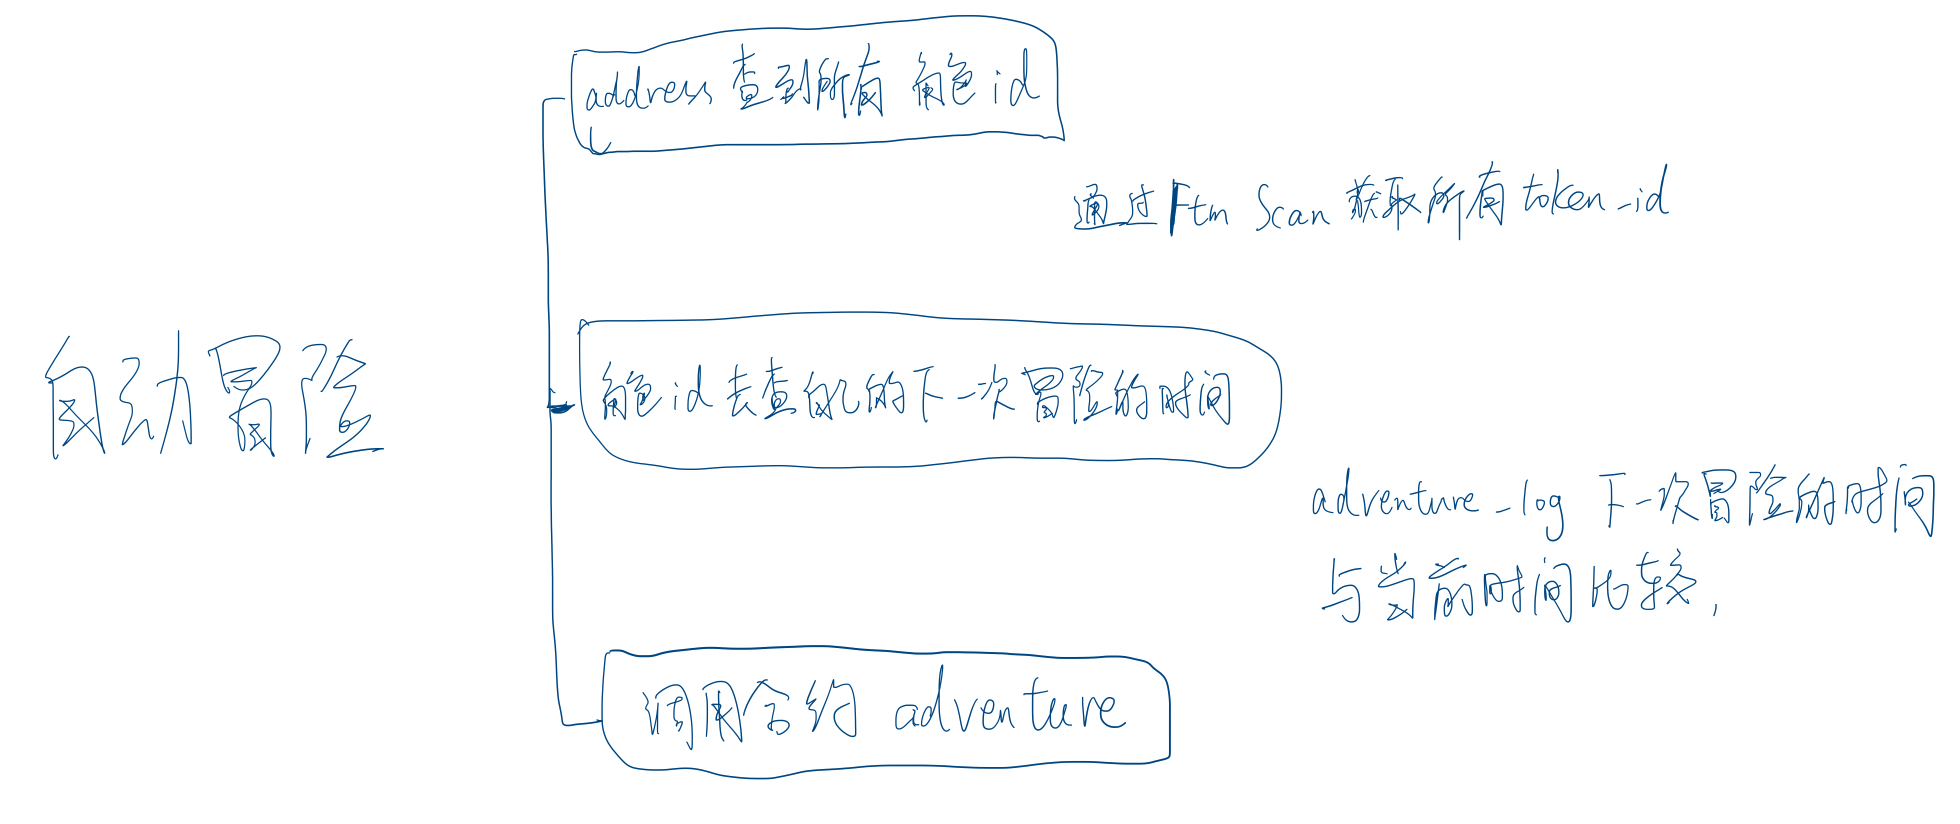 自动冒险
address 查到所有 角色 id
通过 Ftm Scan 获取所有 token_id
角色 id 去查自己的下一次冒险的时间
adventure_log 下一次冒险的时间
与当前时间比较,
调用合约 adventure